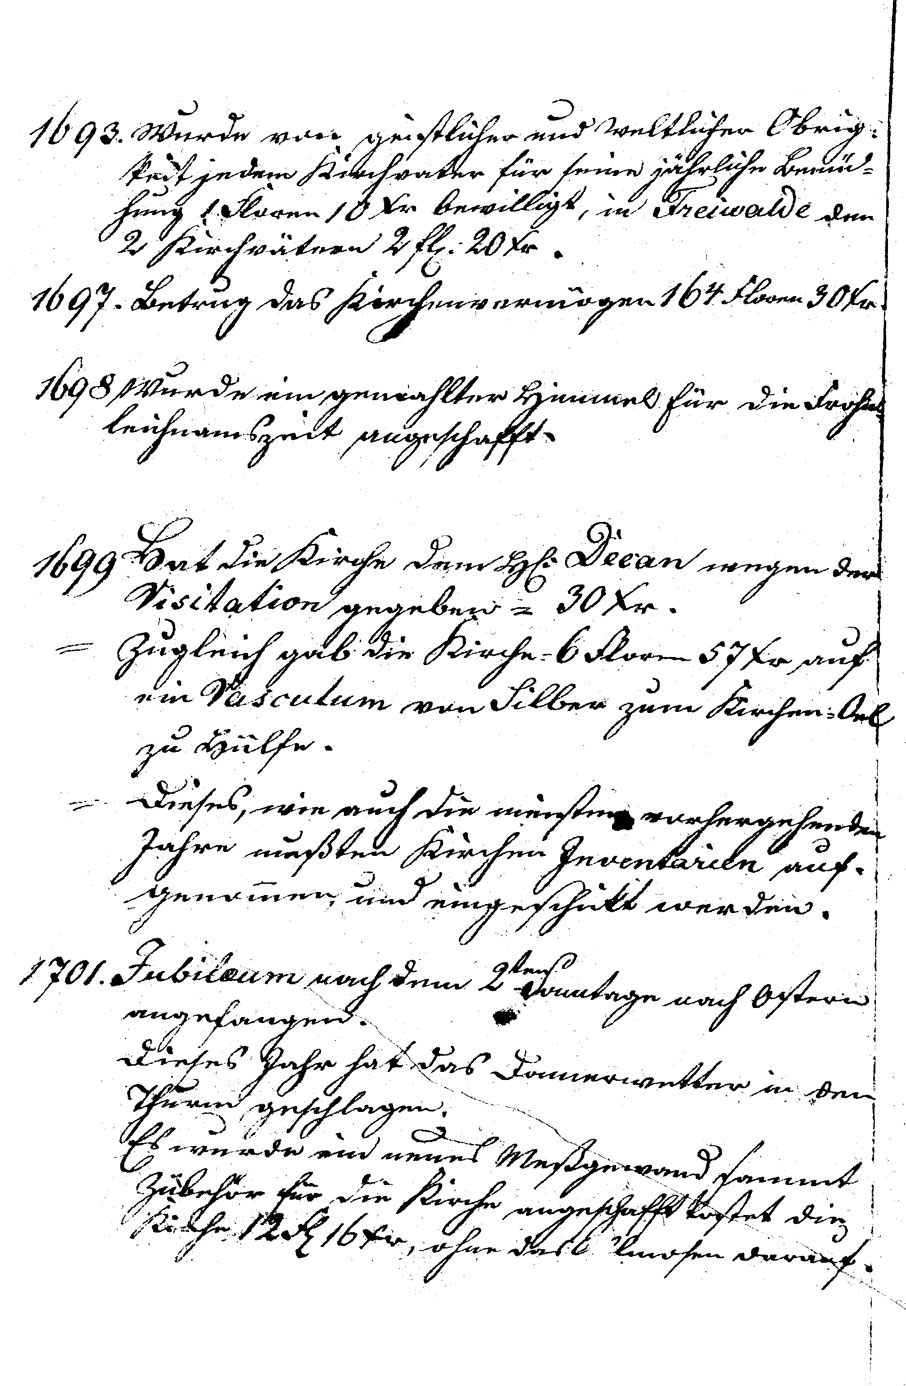 1693. Wurde von geistlicher und weltlicher Obrig-
keit jedem Kirchvater für seine jährliche Bemü-
hung 1 Floren 10 Xr bewilligt, in Freiwalde den
2 Kirchvätern 2 fl: 20 Xr.
1697. Betrug das Kirchenvermögen 164 Floren 30 Xr.
1698 Wurde ein gemahlter Himmel für die Frohn-
leichnamszeit angeschafft.
1699 Hat die Kirche dem H: Decan wegen der
Visitation gegeben = 30 Xr.
= Zugleich gab die Kirche 6 Floren 57 Xr auf
ein Vasculum von Silber zum Kirchen-Oel
zu Hülfe.
= Dieses, wie auch die meisten vorhergehenden
Jahre mußten Kirchen Inventarien auf-
genom̄en, und eingeschikt werden.
1701. Jubilæum nach dem 2ten Sonntage nach Ostern
angefangen.
Dieses Jahr hat das Donnerwetter in den
Thurm geschlagen.
Es wurde ein neues Meßgewand sammt
Zübehör für die Kirche angeschafft kostet die
Kirche 12 fl 16 Xr, ohne das Almosen darauf.